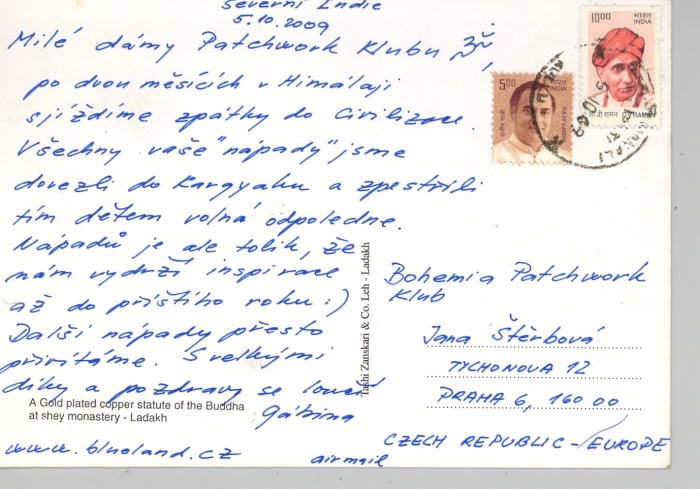 Severní Indie
5.10.2009
Milé dámy Patchwork Klubu ZŠ,
po dvou měsících v Himálaji
sjíždíme zpátky do Civilizace.
Všechny vaše "nápady" jsme
dovezli do Kargyaku a zpestřili
tím dětem volná odpoledne.
Nápadů je ale tolik, že
nám vydrží inspirace
až do příštího roku :)
Další nápady přesto
přivítáme. S velkými
díky a pozdravy se loučí
Gábina
www.blueland.cz
airmail
A Gold plated copper statute of the Buddha
at shey monastery - Ladakh
Tashi Zanskari & Co. Leh - Ladakh
5.00
भारत
INDIA
RAJIV GANDHI
राजीव गांधी
10.00
भारत
INDIA
सी वी रामन C V RAMAN
Bohemia Patchwork
Klub
Jana Štěrbová
TYCHONOVA 12
PRAHA 6, 160 00
CZECH REPUBLIC - EUROPE